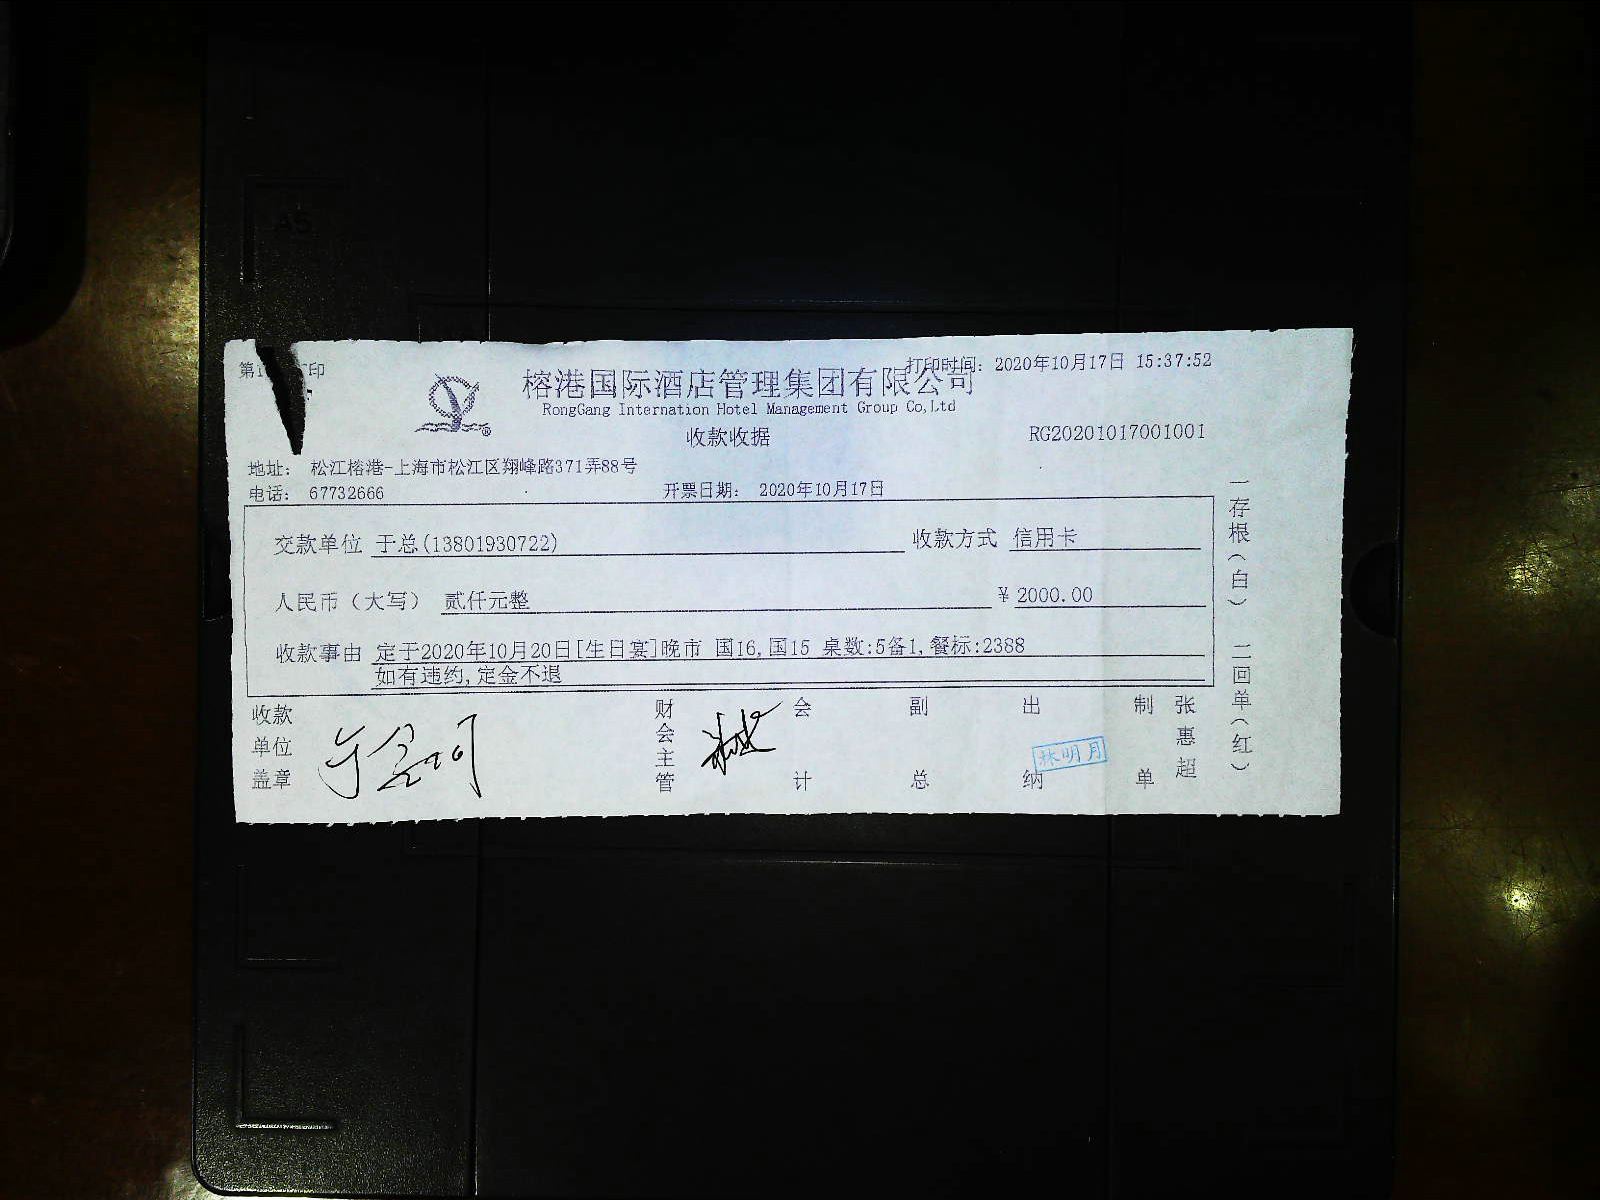 打印时间: 2020年10月17日 15:37:52
榕港国际酒店管理集团有限公司
RongGang Internation Hotel Management Group Co,Ltd
收款收据
RG20201017001001
地址: 松江榕港-上海市松江区翔峰路371弄88号
电话: 67732666 开票日期: 2020年10月17日
交款单位 于总(13801930722) 收款方式 信用卡
人民币（大写） 贰仟元整 ¥ 2000.00
收款事由 定于2020年10月20日[生日宴]晚市 国16,国15 桌数:5备1,餐标:2388
如有违约,定金不退
收款单位盖章
财会主管
会计
副总
出纳 林明月
制单 张惠超
一存根(白) 二回单(红)
A5